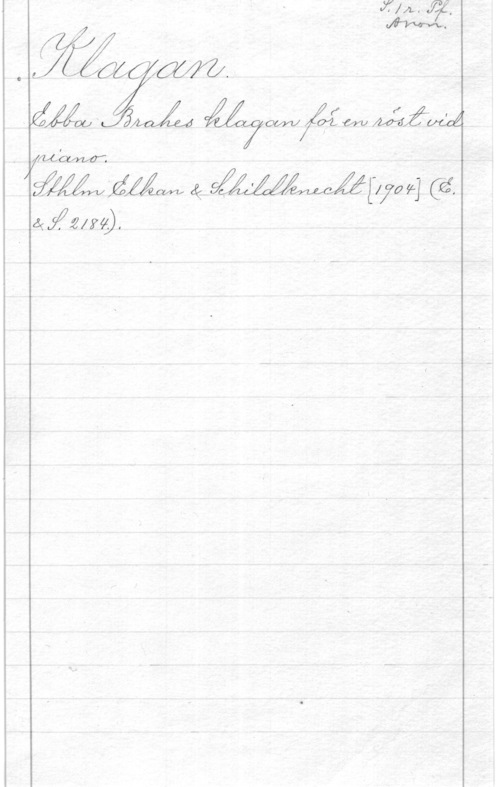 S. 1 r. Pf.
Anon.
Klagan.
Ebba Brahes klagan för en röst vid
piano.
Sthlm Elkan & Schildknecht [1904] (E.
& S. 2184).